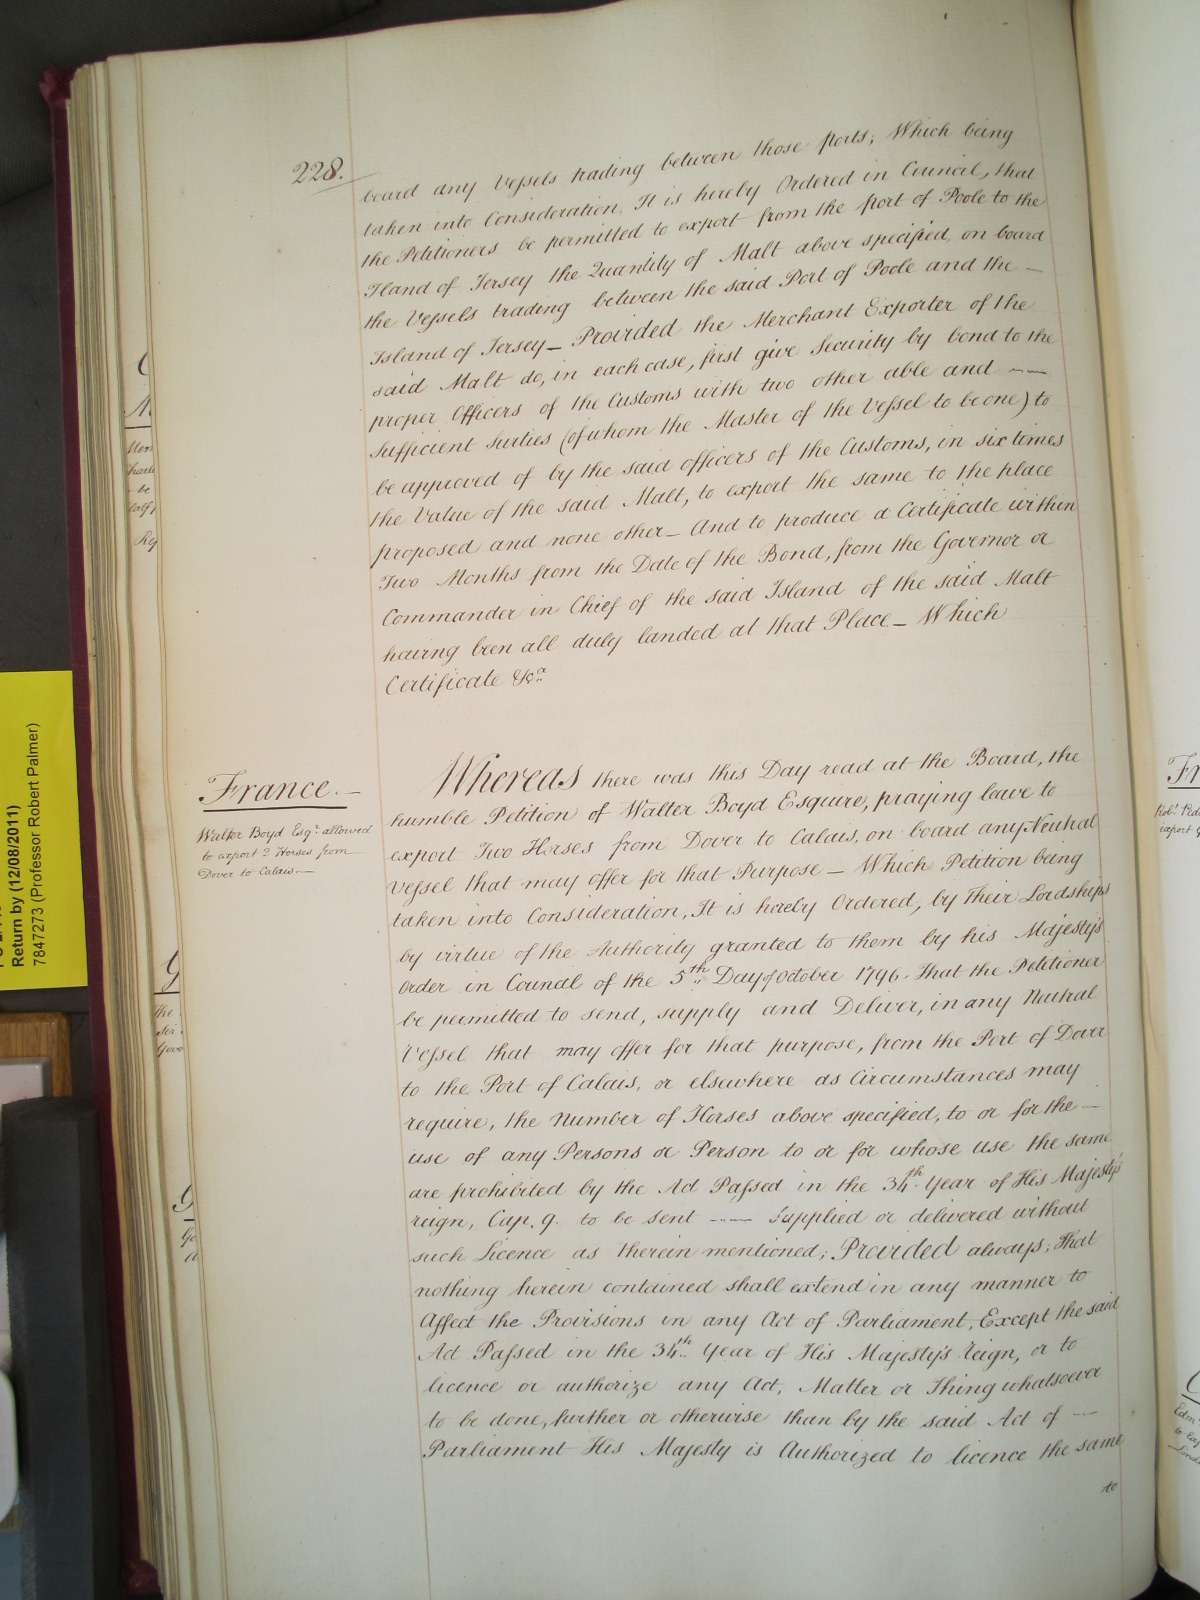 228.
board any Vessels trading between those ports; Which being
taken into Consideration, It is hereby Ordered in Council, that
the Petitioners be permitted to export from the port of Poole to the
Iland of Jersey the Quantity of Malt above specified, on board
the Vessels trading between the said Port of Poole and the —
Island of Jersey — Provided the Merchant Exporter of the
said Malt do, in each case, first give Security by bond to the
proper Officers of the Customs with two other able and ——
Sufficient Surties (of whom the Master of the Vessel to be one) to
be approved of by the said officers of the Customs, in six times
the Value of the said Malt, to export the same to the place
proposed and none other — And to produce a Certificate within
Two Months from the Date of the Bond, from the Governor or
Commander in Chief of the said Island of the said Malt
having been all duly landed at that Place — Which
Certificate &c.a
France. —
Walter Boyd Esqr. allowed
to export 2 Horses from
Dover to Calais —
Whereas there was this Day read at the Board, the
humble Petition of Walter Boyd Esquire, praying leave to
export Two Horses from Dover to Calais, on board any Neutral
Vessel that may offer for that Purpose — Which Petition being
taken into Consideration, It is hereby Ordered, by Their Lordships
by virtue of the Authority granted to them by his Majesty's
Order in Council of the 5th Day of October 1796. That the Petitioner
be permitted to send, supply and Deliver, in any Neutral
Vessel that may offer for that purpose, from the Port of Dover
to the Port of Calais, or elsewhere as Circumstances may
require, the Number of Horses above specified, to or for the —
use of any Persons or Person to or for whose use the same
are prohibited by the Act Passed in the 34th Year of His Majesty's
reign, Cap. 9. to be sent —— Supplied or delivered without
such Licence as therein mentioned; Provided always, That
nothing herein contained shall extend in any manner to
Affect the Provisions in any Act of Parliament, Except the said
Act Passed in the 34th Year of His Majesty's reign, or to
licence or authorize any Act, Matter or Thing whatsoever
to be done, further or otherwise than by the said Act of —
Parliament His Majesty is Authorized to licence the same
to
Return by (12/08/2011)
7847273 (Professor Robert Palmer)